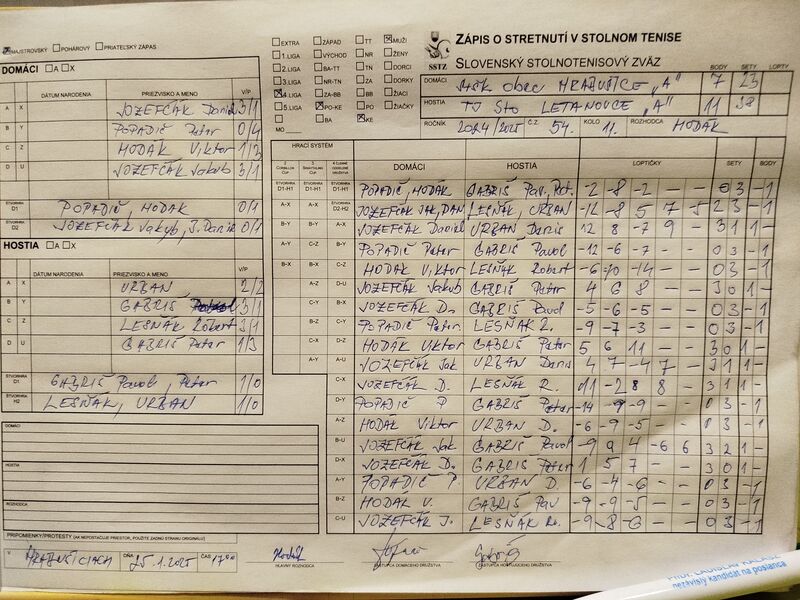 MAJSTROVSKÝ POHÁROVÝ PRIATEĽSKÝ ZÁPAS
EXTRA ZÁPAD TT MUŽI
1.LIGA VÝCHOD NR ŽENY
2.LIGA BA-TT TN DORCI
3.LIGA NR-TN ZA DORKY
4.LIGA ZA-BB BB ŽIACI
5.LIGA PO-KE PO ŽIAČKY
BA KE
MO
SSTZ
ZÁPIS O STRETNUTÍ V STOLNOM TENISE
SLOVENSKÝ STOLNOTENISOVÝ ZVÄZ
BODY SETY LOPTY
DOMÁCI MŠK obec HRABUŠICE "A" 7 23
HOSTIA TJ STO LETANOVCE "A" 11 38
ROČNÍK 2024/2025 Č.Z. 54. KOLO 11. ROZHODCA HODÁK
DOMÁCI A X
DÁTUM NARODENIA PRIEZVISKO A MENO V/P
A X JOZEFČÁK Daniel 3/1
B Y POPADIČ Peter 0/4
C Z HODÁK Viktor 1/3
D U JOZEFČÁK Jakub 3/1
ŠTVORHRA D1 POPADIČ, HODÁK 0/1
ŠTVORHRA D2 JOZEFČÁK Jakub, J. Daniel 0/1
HOSTIA A X
DÁTUM NARODENIA PRIEZVISKO A MENO V/P
A X URBAN 2/2
B Y GABRIŠ 3/1
C Z LESŇÁK Róbert 3/1
D U GABRIŠ Peter 1/3
ŠTVORHRA GABRIŠ Pavol, Peter 1/0
ŠTVORHRA H2 LESŇÁK, URBAN 1/0
DOMÁCI
HOSTIA
ROZHODCA
PRIPOMIENKY/PROTESTY (AK NEPOSTAČUJE PRIESTOR, POUŽITE ZADNÚ STRANU ORIGINÁLU)
V HRABUŠICIACH DŇA 25.1.2025 ČAS 17°°
Hodák
HLAVNÝ ROZHODCA ZÁSTUPCA DOMÁCEHO DRUŽSTVA ZÁSTUPCA HOSTUJÚCEHO DRUŽSTVA
HRACÍ SYSTÉM
DOMÁCI HOSTIA LOPTIČKY SETY BODY
D1-H1 D1-H1 D1-H1 POPADIČ, HODÁK GABRIŠ Pav. Pet. -2 -8 -2 — — 0 3 -1
A-X A-X D2-H2 JOZEFČÁK JAK, DAN LESŇÁK, URBAN -12 -8 5 17 -5 2 3 -1
B-Y B-Y A-X JOZEFČÁK Daniel URBAN Denis 12 8 -7 9 - 3 1 1 -
A-Y C-Z B-Y POPADIČ Peter GABRIŠ Pavol -12 -6 -7 - - 0 3 -1
B-X A-X C-Z HODÁK Viktor LESŇÁK Róbert -6 -10 -14 - - 0 3 -1
A-Z D-U JOZEFČÁK Jakub GABRIŠ Peter 4 6 8 - - 3 0 1 -
C-Y B-X JOZEFČÁK D. GABRIŠ Pavol -5 -6 -5 - - 0 3 -1
B-Z C-Y POPADIČ Peter LESŇÁK R. -9 -7 -3 - - 0 3 -1
C-X D-Z HODÁK Viktor GABRIŠ Peter 5 6 11 - - 3 0 1 -
A-Y A-U JOZEFČÁK Jak URBAN Denis 4 7 -4 7 - 3 1 1 -
C-X JOZEFČÁK D. LESŇÁK R. 11 -2 8 8 - 3 1 1 -
D-Y POPADIČ P GABRIŠ Peter -14 -9 -9 - - 0 3 -1
A-Z HODÁK Viktor URBAN D. -6 -9 -5 - - 0 3 -1
B-U JOZEFČÁK Jak GABRIŠ Pavol -9 9 4 -6 6 3 2 1 -
D-X JOZEFČÁK D. GABRIŠ Peter 1 5 7 - - 3 0 1 -
A-Y POPADIČ P. URBAN D. -6 -4 -6 - - 0 3 -1
B-Z HODÁK V. GABRIŠ Pav -9 -9 -5 - - 0 3 -1
C-U JOZEFČÁK J. LESŇÁK Ró. -9 -8 -6 - - 0 3 -1
nezávislý kandidát na poslanca